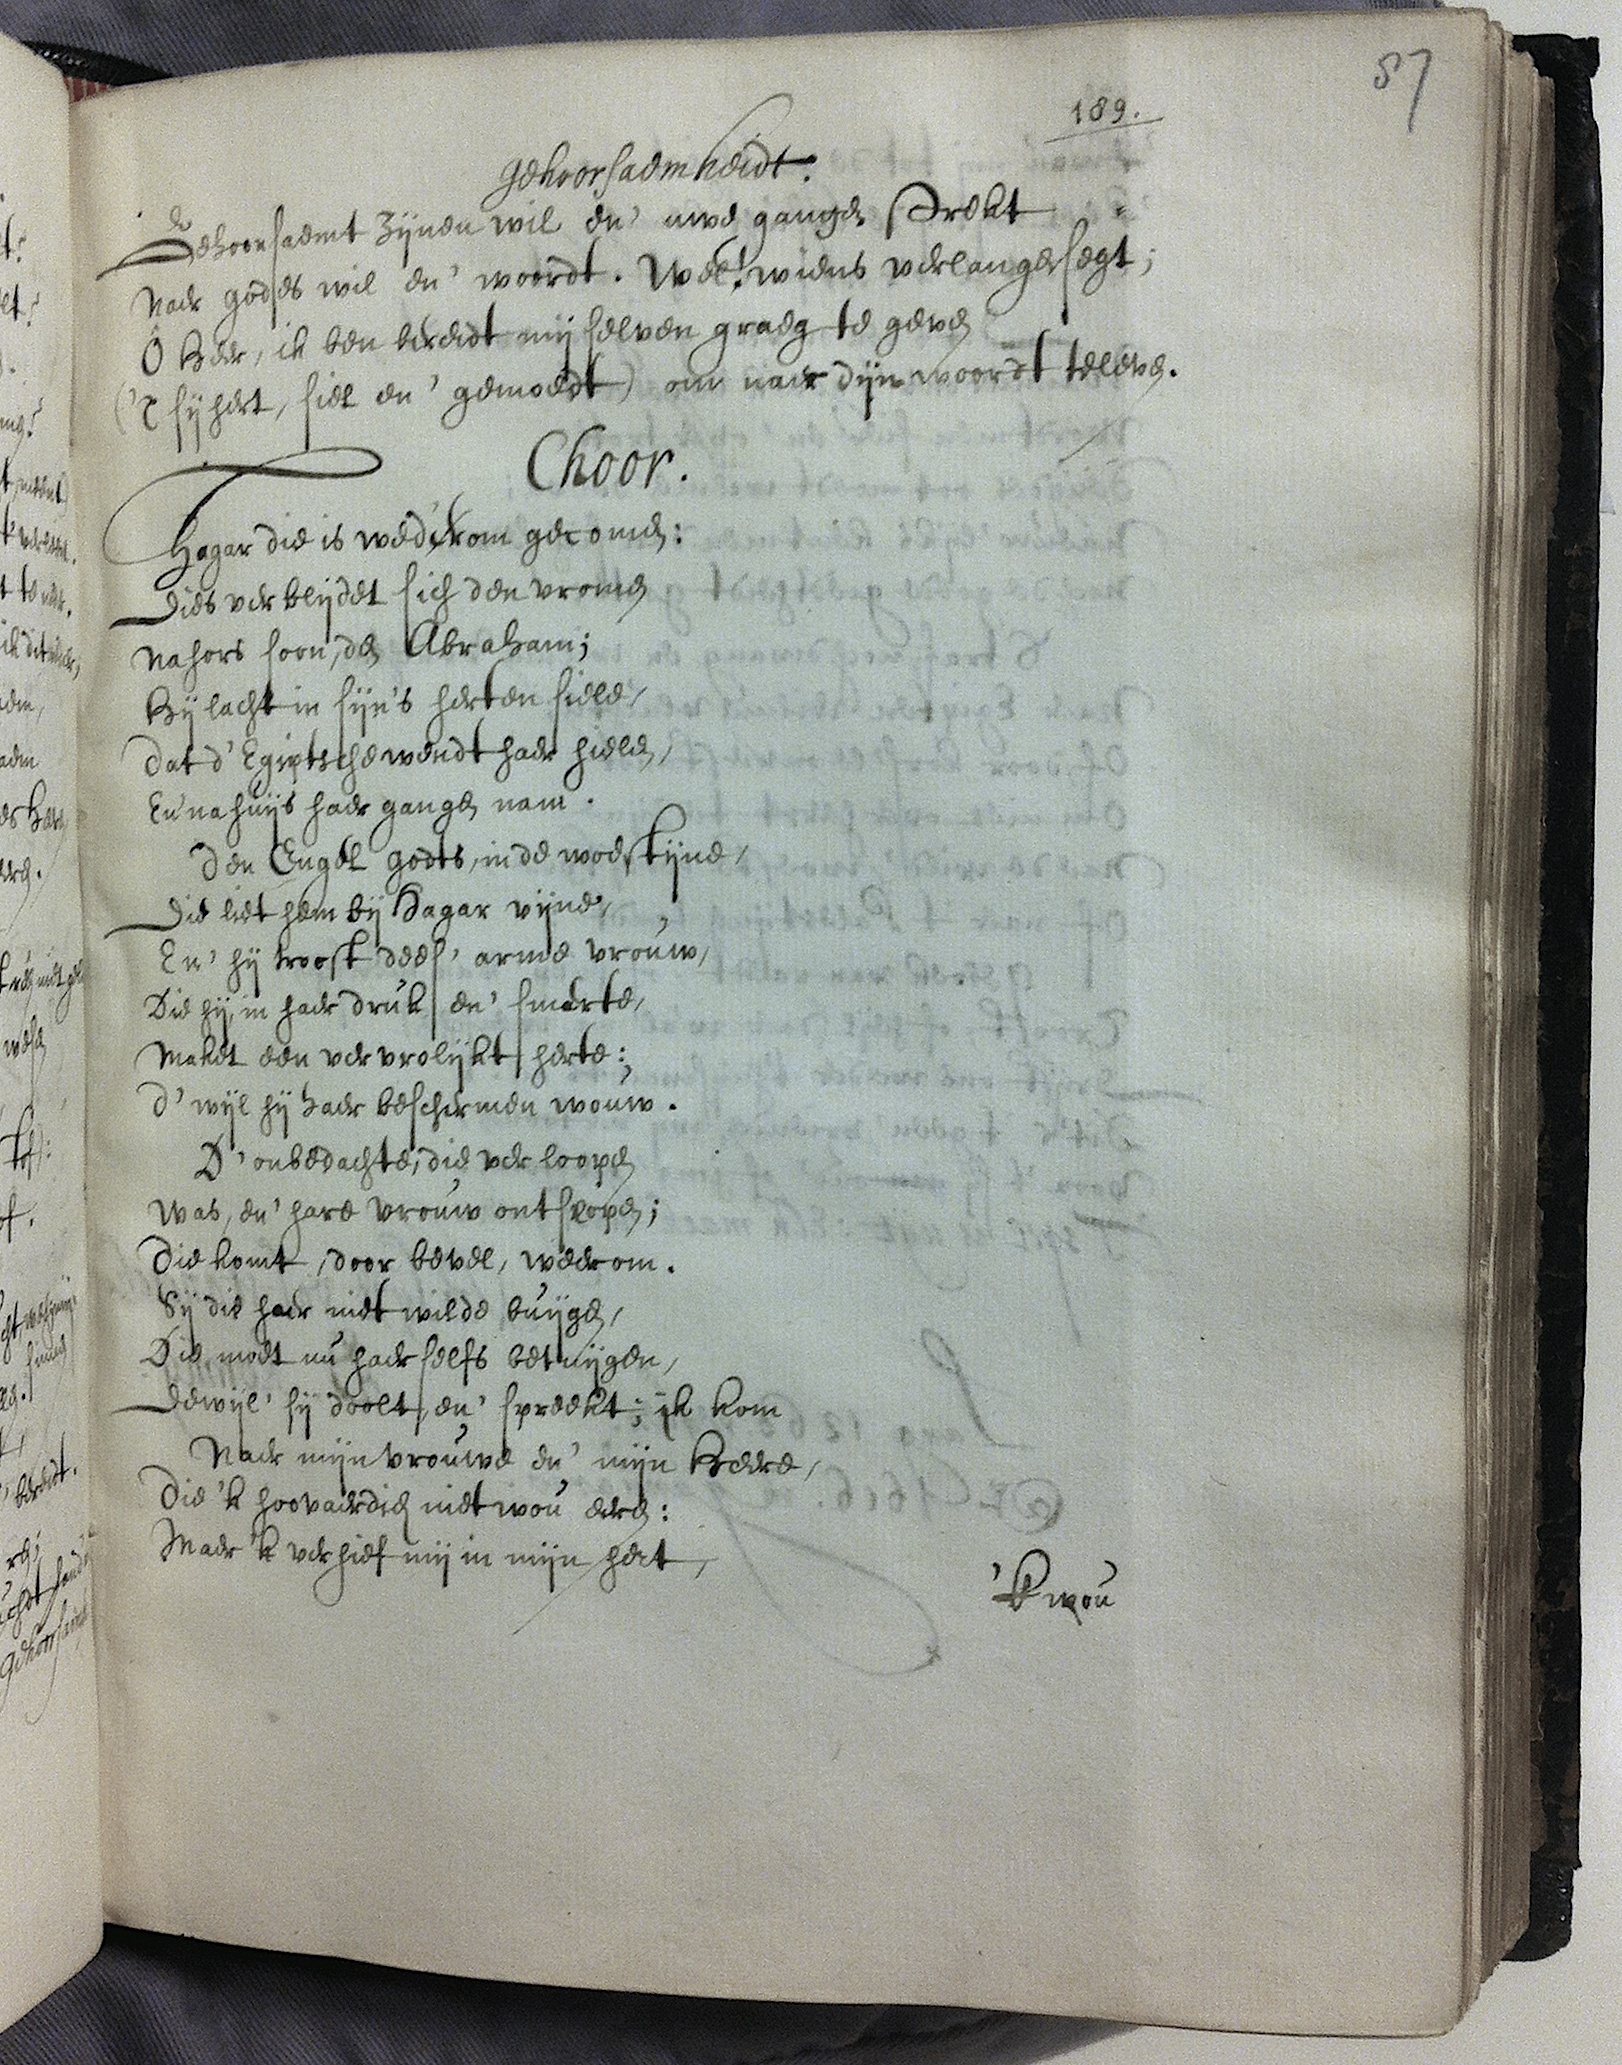 87
189.
gehoorsaemheidt.
Gehoorsaemt Zijnen wil en' uwe gangen strekt
Naer godes wil en' woordt. Wel! wiens verlangen segt;
Ô Heer, ik ben bereidt mij selven graeg te geven
('T sij hert, siel en' gemoedt) om naer dijn woordt te leven.
Choor.
Hagar die is wederkom gecomen:
Dies verblijdet sich den vromen
Nahors soon, den Abraham;
Hij lacht in sijn's herten siele,
Dat d' Egiptsche wendt haer hielen,
En' na huijs haer gangen nam.
Den Engel godts, in de woestijne,
Die liet hem bij Hagar vijne,
En' hij troost dees' arme vrouw,
Die hij, in haer druk en' smarte,
Maket een vervrolijkt herte:
D' wijl hij haer beschermen wouw.
D' onbedachte, die verloopen
Was, en' hare vrouw ontslopen;
Die komt, door bevel, weerom.
Sij die haer niet wilde buijgen,
Die moet nu haer selfs betuijgen,
Dewijl' sij doolt, en' spreekt; ik kom
Naer mijn vrouwe en' mijn Heere,
Die 'k hoovaerdich niet wou eeren:
Maer 'k verhief mij in mijn hert,
'k wou